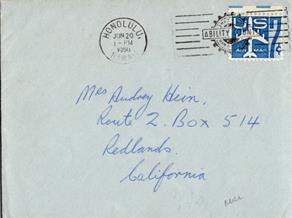 HONOLULU,
JUN 20
1 - PM
1960
HAWAII
ABILITY
U.S.
AIR MAIL
7¢
Mrs Audrey Hein,
Route 2. Box 514
Redlands.
California